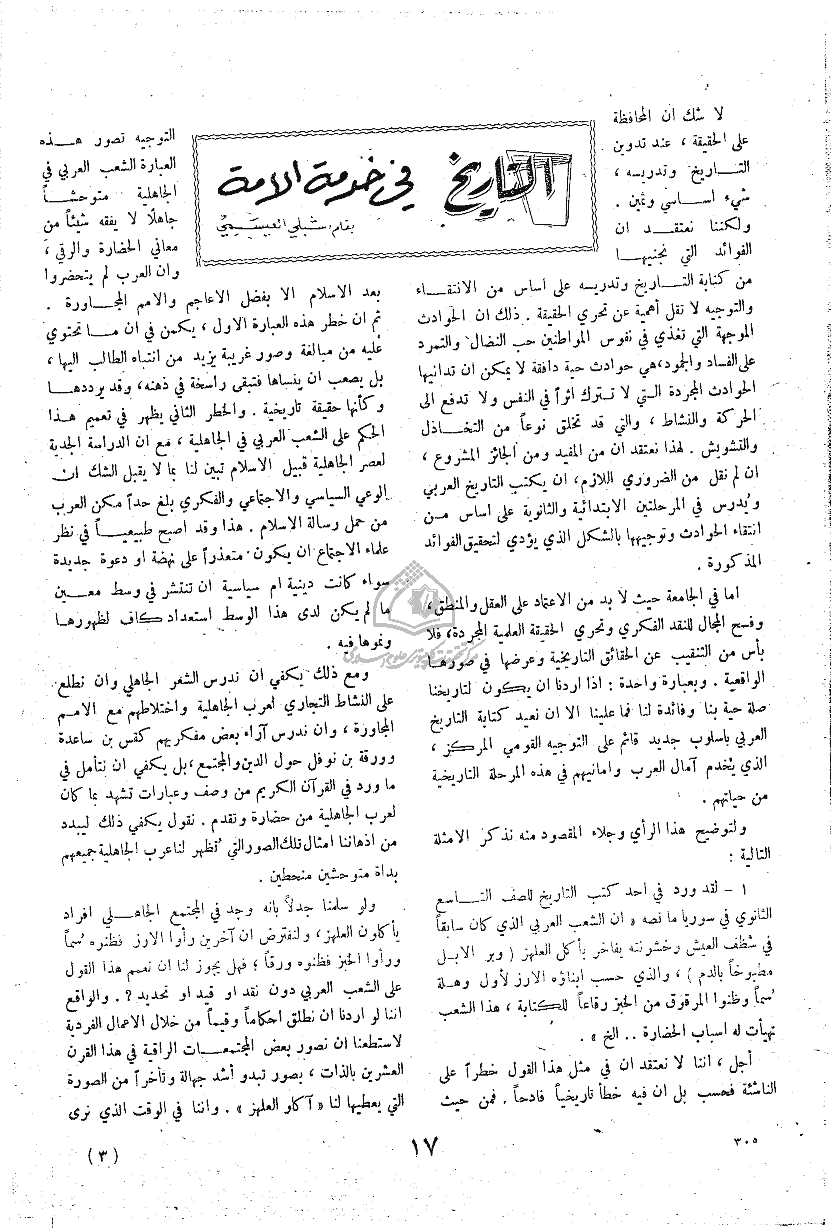 التاريخ في خدمة الامة
بقلم: شبلي العيسمي
لا شك ان المحافظة
على الحقيقة ، عند تدوين
التـــاريخ وتدريسه ،
شيء اساسي وثمين .
ولكننا نعتقـــد ان
الفوائد التي نجنيهـا
من كتابة التـــاريخ وتدريسه على اساس من الانتقـــاء
والتوجيه لا تقل أهمية عن تحري الحقيقة . ذلك ان الحوادث
الموجهة التي تغذي في نفوس المواطنين حب النضال والتمرد
على الفساد والجمود،هي حوادث حية دافقة لا يمكن ان تدانيها
الحوادث المجردة التي لا تـترك اثراً في النفس ولا تدفع الى
الحركة والنشاط ، والتي قد تخلق نوعاً من التخـــاذل
والتشويش . لهذا نعتقد ان من المفيد ومن الجائز المشروع ،
ان لم نقل من الضروري اللازم، ان يكتب التاريخ العربي
ويُدرس في المرحلتين الابتدائية والثانوية على اساس مـــن
انتقاء الحوادث وتوجيهها بالشكل الذي يؤدي لتحقيق الفوائد
المذكورة .
اما في الجامعة حيث لا بد من الاعتماد على العقل والمنطق،
وفسح المجال للنقد الفكري وتحري الحقيقة العلمية المجردة، فلا
بأس من التنقيب عن الحقائق التاريخية وعرضها في صورهـا
الواقعية . وبعبارة واحدة : اذا اردنا ان يكون لتاريخنا
صلة حية بنا وفائدة لنا فما علينا الا ان نعيد كتابة التاريخ
العربي باسلوب جديد قائم على التوجيه القومي المركز ،
الذي يخدم آمال العرب وامانيهم في هذه المرحلة التاريخية
من حياتهم .
ولتوضيح هذا الرأي وجلاء المقصود منه نذكر الامثلة
التالية :
١ – لقد ورد في احد كتب التاريخ للصف التـــاسع
الثانوي في سوريا ما نصه « ان الشعب العربي الذي كان سابقاً
في شظف العيش وخشونته يفاخر بأكل العلهز ( وبر الابـل
مطبوخاً بالدم ) ، والذي حسب ابناؤه الارز لأول وهـلة
سُماً وظنوا المرقوق من الخبز رقاعاً للكتابة ، هذا الشعب
تهيأت له اسباب الحضارة .. الخ » .
أجل ، اننا لا نعتقد ان في مثل هذا القول خطراً على
الناشئة فحسب بل ان فيه خطأ تاريخياً فادحاً . فمن حيث
التوجيه تصور هـــذه
العبارة الشعب العربي في
الجاهلية متوحشـــاً
جاهلاً لا يفقه شيئاً من
معاني الحضارة والرقي ،
وان العرب لم يتحضروا
بعد الاسلام الا بفضل الاعاجم والامم المجـاورة .
ثم ان خطر هذه العبارة الاول ، يكمن في ان مـا تحتوي
عليه من مبالغة وصور غريبة يزيد من انتباه الطالب اليها ،
بل يصعب ان ينساها فتبقى راسخة في ذهنه، وقد يرددهـا
وكأنها حقيقة تاريخية . والخطر الثاني يظهر في تعميم هـذا
الحكم على الشعب العربي في الجاهلية ، مع ان الدراسة الجدية
لعصر الجاهلية قبيل الاسلام تبين لنا بما لا يقبل الشك ان
الوعي السياسي والاجتماعي والفكري بلغ حداً مكن العرب
من حمل رسالة الاسلام . هذا وقد اصبح طبيعيـــاً في نظر
علماء الاجتماع ان يكون متعذراً على نهضة او دعوة جديدة
سواء كانت دينية ام سياسية ان تنتشر في وسط معـــين
ما لم يكن لدى هذا الوسط استعداد كاف لظهورهـا
ونموها فيه .
ومع ذلك يكفي ان ندرس الشعر الجاهلي وان نطلع
على النشاط التجاري لعرب الجاهلية واختلاطهم مع الامـــم
المجاورة ، وان ندرس آراء بعض مفكريهم كقس بن ساعدة
وورقة بن نوفل حول الدين والمجتمع،بل يكفي ان نتأمل في
ما ورد في القرآن الكريم من وصف وعبارات تشهد بما كان
لعرب الجاهلية من حضارة وتقدم . نقول يكفي ذلك ليبدد
من اذهاننا امثال تلك الصور التي تُظهر لنا عرب الجاهلية جميعهم
بداة متوحشين منحطين .
ولو سلمنا جدلاً بانه وجد في المجتمع الجاهـــلي افراد
يأكلون العلهز ، ولنفترض ان آخرين رأوا الارز فظنوه سُماً
ورأوا الخبز فظنوه ورقاً ؛ فهل يجوز لنا ان نعمم هذا القول
على الشعب العربي دون نقد او قيد او تحديد ? . والواقع
اننا لو اردنا ان نطلق احكاماً وقيماً من خلال الاعمال الفردية
لاستطعنا ان نصور بعض المجتمعـــات الراقية في هذا القرن
العشرين بالذات ، بصور تبدو أشد جهالة وتأخراً من الصورة
التي يعطيها لنا « آكلو العلهز » . واننا في الوقت الذي نرى
٣٠٥
١٧
( ٣ )